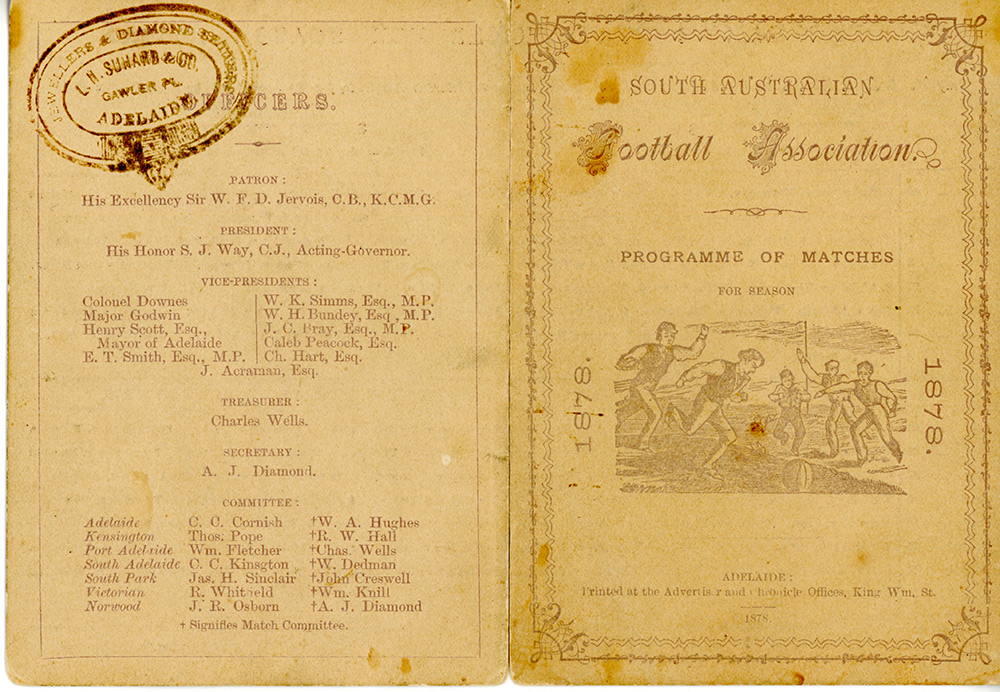 JEWELLERS & DIAMOND SETTERS
L. H. SUMARD & CO.
GAWLER PL.
ADELAIDE
OFFICERS.
PATRON :
His Excellency Sir W. F. D. Jervois, C.B., K.C.M.G.
PRESIDENT :
His Honor S. J. Way, C.J., Acting-Governor.
VICE-PRESIDENTS :
Colonel Downes
Major Godwin
Henry Scott, Esq.,
Mayor of Adelaide
E. T. Smith, Esq., M.P.
W. K. Simms, Esq., M.P.
W. H. Bundey, Esq , M.P.
J. C. Bray, Esq., M.P.
Caleb Peacock, Esq.
Ch. Hart, Esq.
J. Acraman, Esq.
TREASURER :
Charles Wells.
SECRETARY :
A. J. Diamond.
COMMITTEE :
Adelaide C. C. Cornish †W. A. Hughes
Kensington Thos. Pope †R. W. Hall
Port Adelaide Wm. Fletcher †Chas. Wells
South Adelaide C. C. Kinsgton †W. Dedman
South Park Jas. H. Sinclair †John Creswell
Victorian R. Whitfield †Wm. Knill
Norwood J. R. Osborn †A. J. Diamond
† Signifies Match Committee.
SOUTH AUSTRALIAN
Football Association.
PROGRAMME OF MATCHES
FOR SEASON
1878.
1878.
ADELAIDE :
Printed at the Advertiser and Chronicle Offices, King Wm. St.
1878.